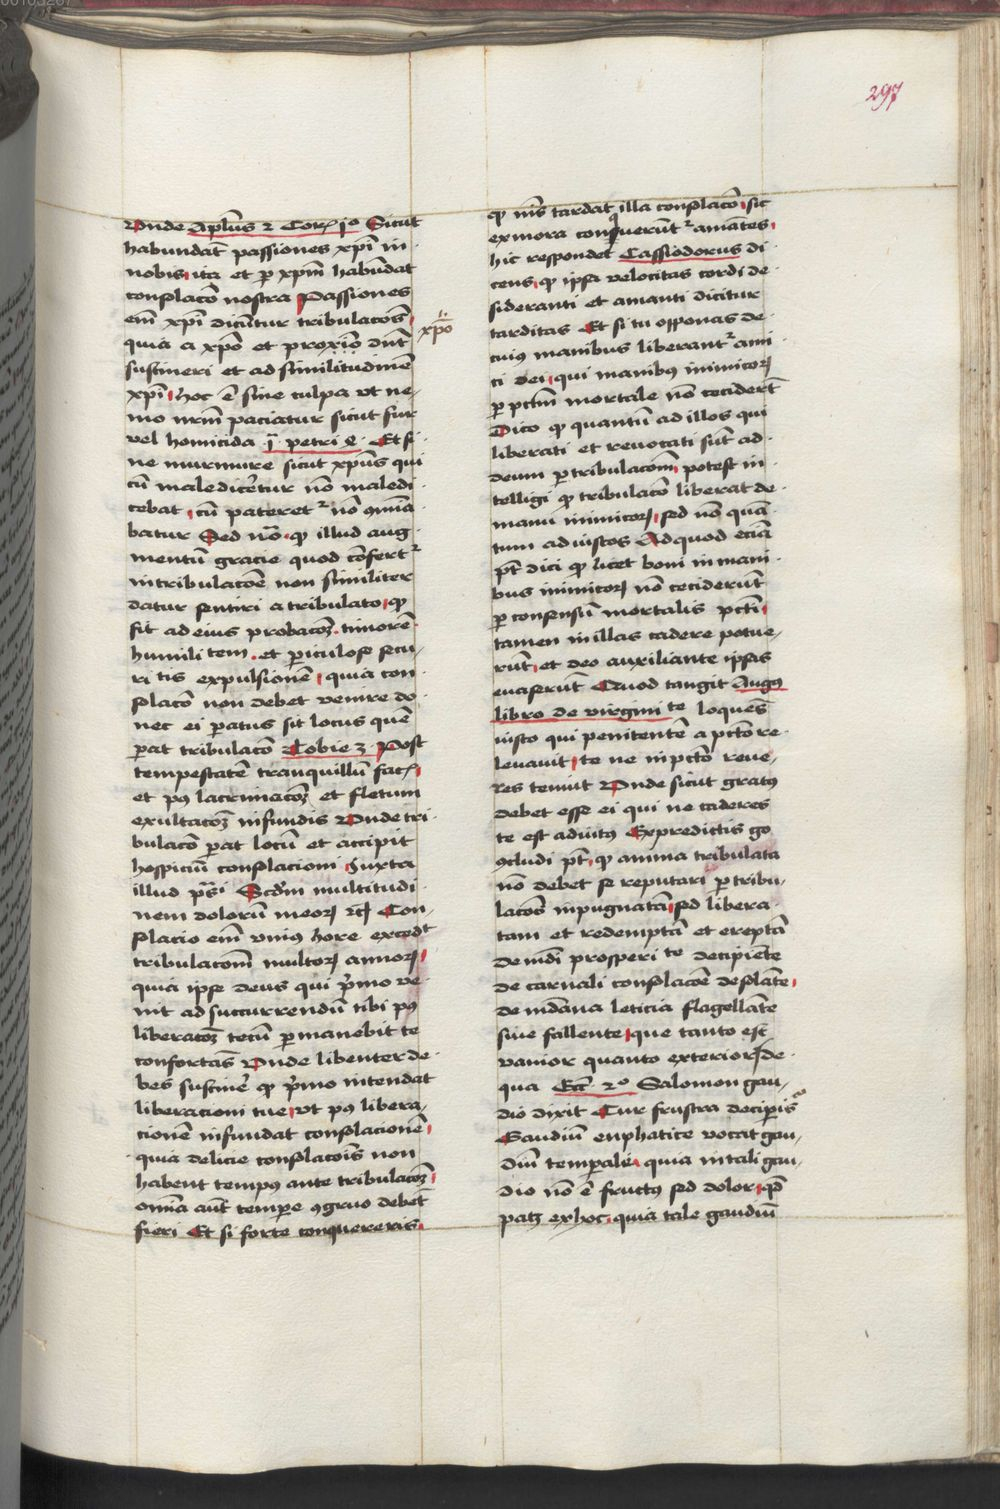 297
Vnde Apl̄us 2 Corꝝ jo Sicut
habundāt passiones xpī in
nobis ita et ꝑ xpm̄ habūdat
consolacō nostra Passiones
em̄ xpī dicūtur tribulacōes
quia a xpō et proxiō dn̄t
sustineri et ad similitudinē
xpī hoc ē sine culpa vt ne-
mo nr̄m paciatur sicut fur
vel homicida j petri 4 Et si-
ne murmure sicut xp̄us qui
cū malediceretur nō maledi-
cebat cū pateret᷑ nō ꝯmina-
batur Sed nō ꝙ illud aug-
mentū gracie quod cōfert᷑
in tribulacōe non similiter
datur sentiri a tribulato ꝙ
fit ad eius probacōꝫ timorē
humili tem et ꝑiculose secu-
ri tis expulsionē quia con-
solacō non debet venire do-
nec ei ꝑatus sit locus quē
ꝑat tribulacō Tobie 3 Post
tempestatē tranquillū facꝭ
et pꝰ lacrimacōꝫ et fletum
exultacōꝫ infundis Vnde tri-
bulacō ꝑat locū et accipit
hospiciū consolacioni Juxta
illud ps̄i Scd̄m multitudi-
nem dolorū meoꝝ rc̄ Con-
solacio em̄ vnius hore excedt
tribulacōm multoꝝ annoꝝ
quia ipse deus qui p̄mo ve-
nit ad succurrendū tibi pꝰ
liberacōꝫ tecū ꝑmanebit te
confortās Vnde libenter de-
bes sustinē ꝙ p̄mo intendat
liberacioni tue vt pꝰ libera-
cionē infundat consolacionē
quia delicie consolacōis non
habent tempꝰ ante tribulacōꝫ
om̄ia aūt tempore ꝯgruo debēt
fieri Et si forte conquereris
xpō
ꝙ nīs tardat illa consolacō sic
ex mora conqueruntur amātes
hic respondet Cassiodorus di-
cens ꝙ ipsa velocitas cordi de-
sideranti et amanti dicitur
tarditas Et si tu opponas de
cuius manibus liberant᷑ ami-
ci dei qui manibꝰ inimicoꝝ
ꝑ pctm̄ mortale nō ceciderūt
Dico ꝙ quantū ad illos qui
liberati et reuocati sūt ad
deum ꝑ tribulacōm potest in-
telligi ꝙ tribulacō liberat de
manu inimicoꝝ sed nō quā-
tum ad iustos Ad quod eciā
pt̄ dici ꝙ licet boni in mani-
bus inimicoꝝ nō ceciderūt
ꝑ consensū mortalis pcti
tamen in illas cadere potue-
rūt et deo auxiliante ipsas
euaserūt Quod tangit Augꝰ
libro de virgini te loquēs
iusto qui penitentē a pctō re-
leuauit te ne in pctō reue-
res tenuit Vnde sicut gratꝰ
debet esse ei qui ne caderes
te est adiutꝰ Ex predictis go
ꝯcludi pt̄ ꝙ anima tribulata
nō debet se reputari ꝑ tribu-
lacōes inpugnatā sed libera-
tam et redemptā et ereptā
de mūdi prosperi te decipiente
de carnali consolacōe desolāte
de mūdana leticia flagellāte
siue fallente que tanto est
vanior quanto exterior de
qua Ecc̄ 2o Salomon gau-
dio dixit Cur frustra deciperis
Gaudiū enphatice vocat gau-
diū temporale quia in tali gau-
dio nō ē fructꝰ sed dolor qd̄
patꝫ ex hoc quia tale gaudiū